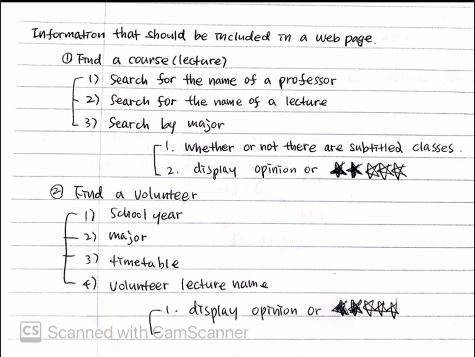 Information that should be included in a web page.
① Find a course (lecture)
1) Search for the name of a professor
2) Search for the name of a lecture
3) Search by major
1. whether or not there are subtitled classes.
2. display opinion or ★★☆☆☆
② Find a volunteer
1) School year
2) major
3) timetable
4) volunteer lecture name
1. display opinion or ★★☆☆☆
CS Scanned with CamScanner